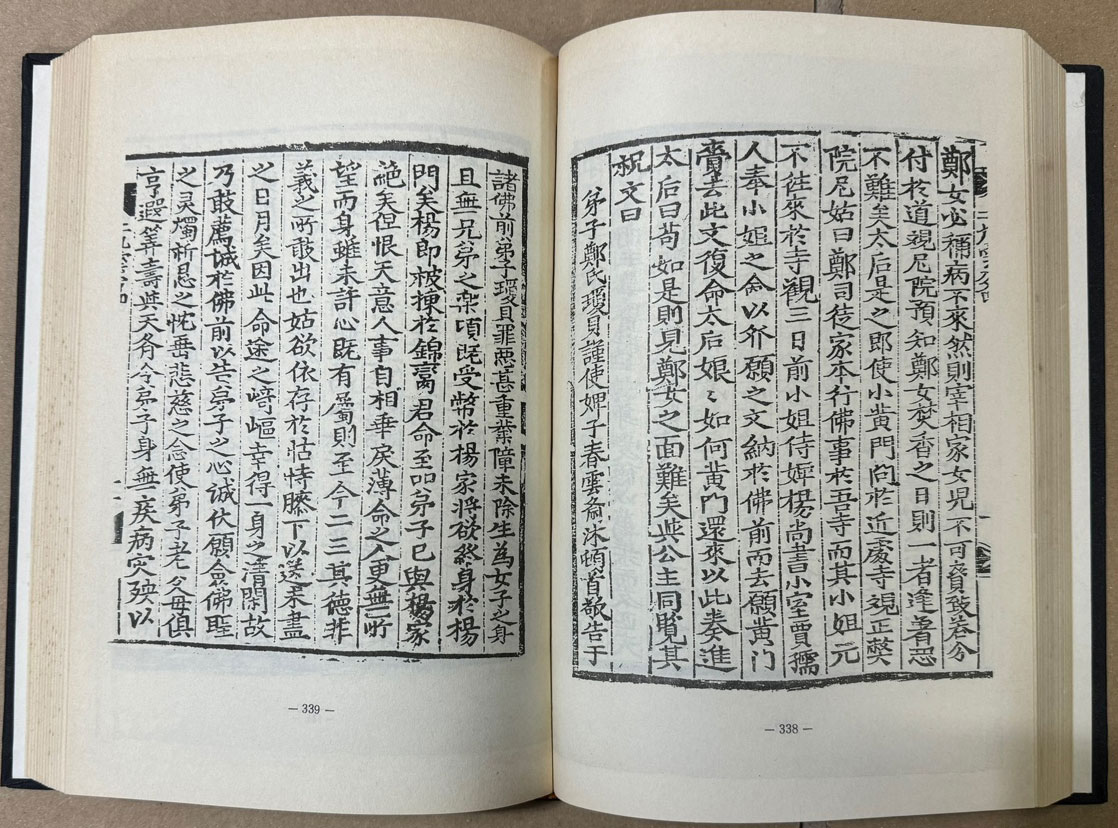 鄭女必稱病不來然則宰相家女児不可賫致若分
付於道覌尼院預知鄭女焚香之日則一者逢着恐
不難矣太后是之即使小黄門問於近處寺覌正㷊
院尼姑曰鄭司徒家本行佛事於吾寺而其小姐元
不徃來於寺觀三日前小姐侍婢楊尚書小室賈孺
人奉小姐之命以𤼵願之文納於佛前而去願黄门
賫去此文復命太后娘〻如何黄門還來以此奏進
太后曰苟如是則見鄭女之面難矣與公主同覧其
祝文曰
弟子鄭氏瓊貝謹使婢子春雲齋沐頓首敬告于
— 338 —
諸佛前弟子瓊貝罪惡甚重業障未除生為女子之身
且無兄弟之楽頃既受幣於楊家将欲終身於楊
門矣楊郎被揀於錦䜌君命至严弟子已與楊家
絶矣但恨天意人事自相乖戾薄命之人更無所
望而身雖未許心既有屬則至今二三其德非
義之所敢出也姑欲依存於怙恃膝下以送未盡
之日月矣因此命途之﨑嶇幸得一身之清閑故
乃敢薦誠於佛前以告弟子之心誠伏願佥佛聖
之灵燭祈恳之忱垂悲慈之念使弟子老父母俱
亨遐筭壽與天齐令弟子身無疾病灾殃以
— 339 —